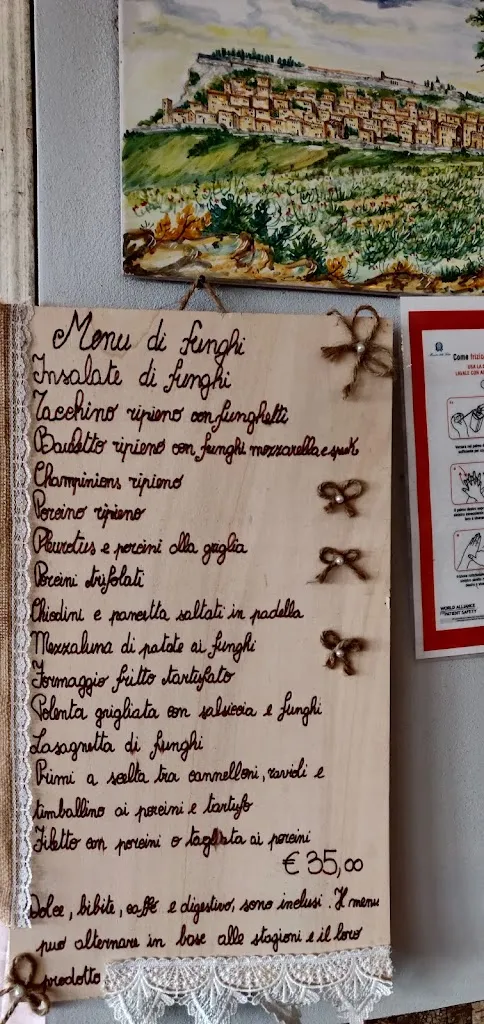 Menu di funghi
Insalate di funghi
Tacchino ripieno con funghetti
Bauletto ripieno con funghi mozzarella e speck
Champinions ripieno
Porcino ripieno
Pleurotus e porcini alla griglia
Porcini trifolati
Chiodini e pancetta saltati in padella
Mezzaluna di patate ai funghi
Formaggio fritto tartufato
Polenta grigliata con salsiccia e funghi
Lasagnetta di funghi
Primi a scelta tra cannelloni, ravioli e
timballino ai porcini e tartufo
Filetto con porcini o tagliata ai porcini
€ 35,00
Dolce, bibite, caffè e digestivo, sono inclusi. Il menu
può alternare in base alle stagioni e il loro
prodotto
Come frizio
USA LA
LAVALE CON A
WORLD ALLIANCE
PATIENT SAFETY